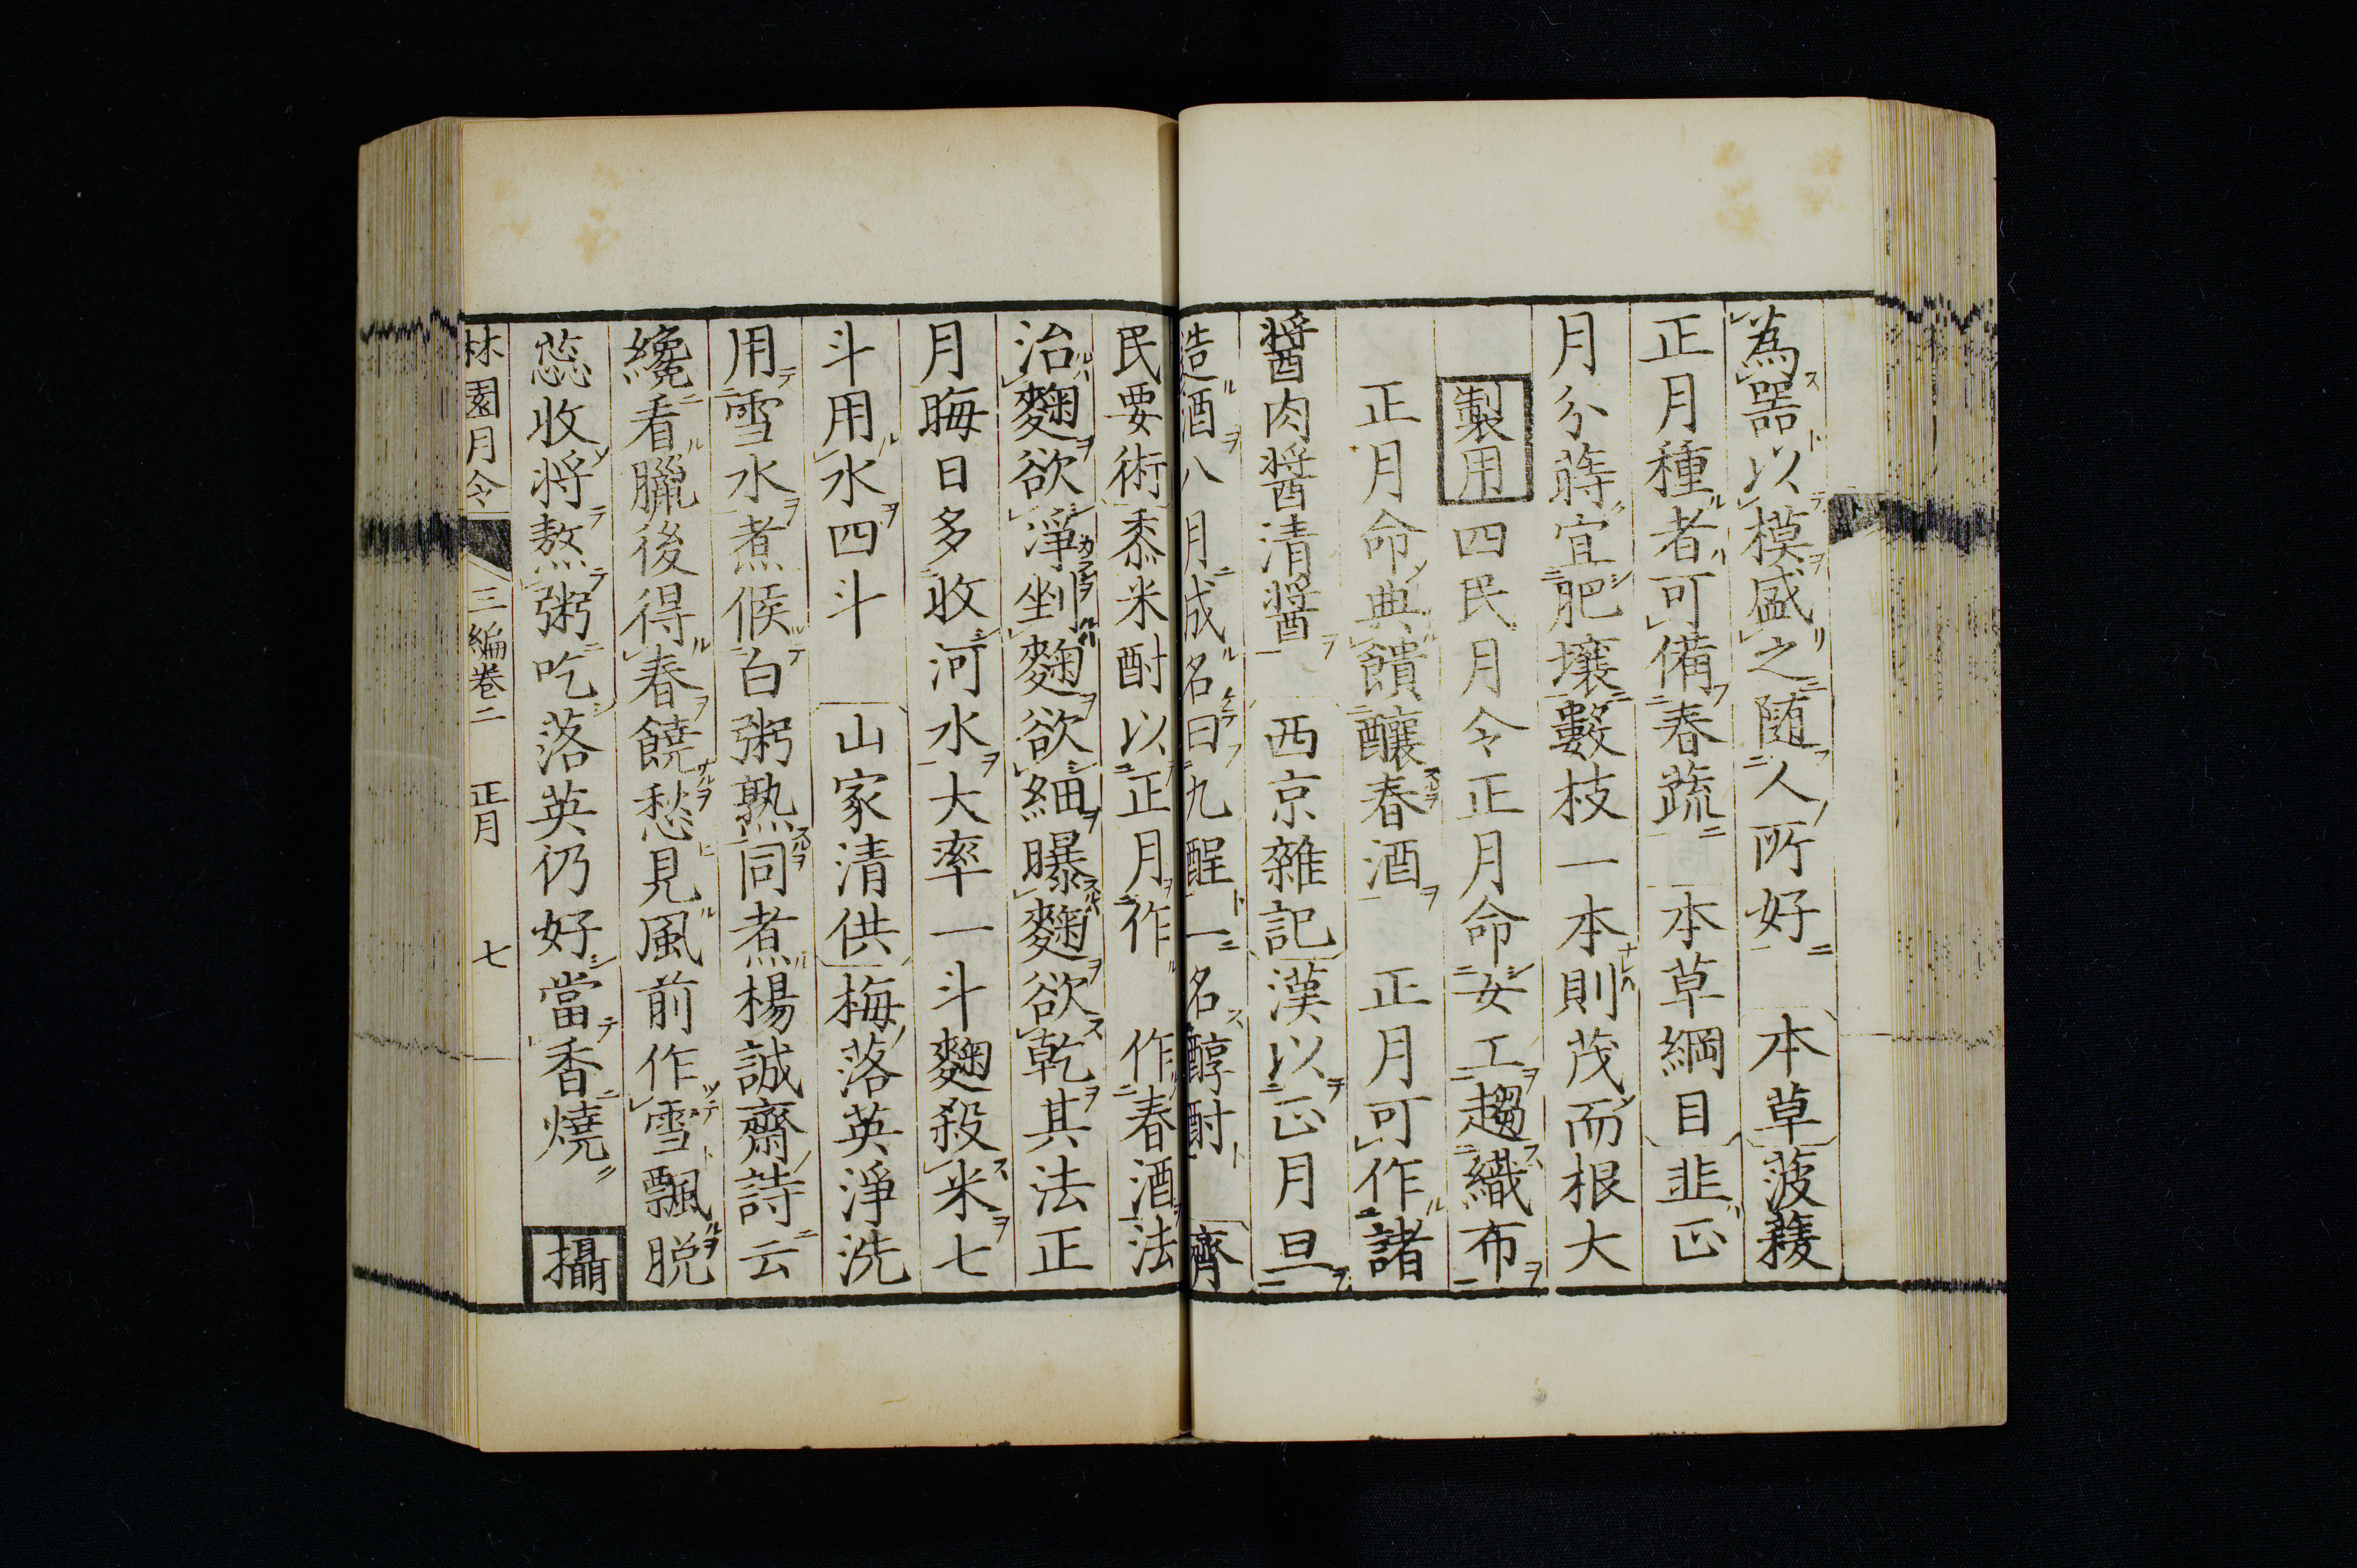 為器以模盛之随人所好 本草菠薐
正月種者可備春蔬 本草綱目韭正
月分蒔宜肥壤數枝一本則茂而根大
製用 四民月令正月命女工趨織布
正月命典饋釀春酒 正月可作諸
醬肉醬清醬 西京雜記漢以正月旦
造酒八月成名曰九醞一名醇酎 齊
民要術黍米酎以正月作 作春酒法
治麴欲淨剉麴欲細曝麴欲乾其法正
月晦日多收河水大率一斗麴殺米七
斗用水四斗 山家清供梅落英淨洗
用雪水煮候白粥熟同煮楊誠齋詩云
纔看臘後得春饒愁見風前作雪飄脱
蕊收将熬粥吃落英仍好當香燒 攝
林園月令 三編卷二 正月 七